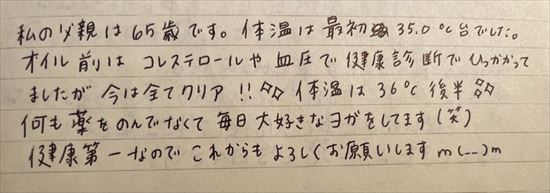 私の父親は65歳です。体温は最初35.0℃台でした。
オイル前はコレステロールや血圧で健康診断でひっかかって
ましたが今は全てクリア!!✨体温は36℃後半✨
何も薬をのんでなくて毎日大好きなヨガをしてます(笑)
健康第一なのでこれからもよろしくお願いしますm(__)m